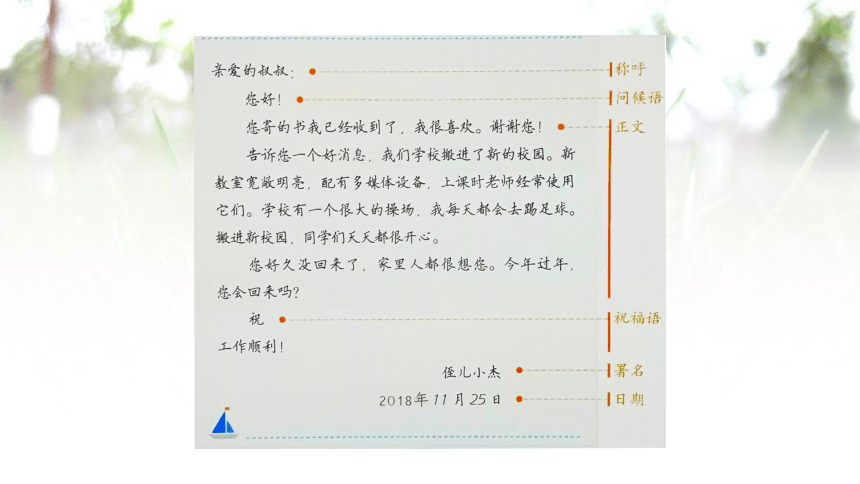 亲爱的叔叔： 称呼
您好！ 问候语
您寄的书我已经收到了，我很喜欢。谢谢您！ 正文
告诉您一个好消息，我们学校搬进了新的校园。新
教室宽敞明亮，配有多媒体设备，上课时老师经常使用
它们。学校有一个很大的操场，我每天都会去踢足球。
搬进新校园，同学们天天都很开心。
您好久没回来了，家里人都很想您。今年过年，
您会回来吗？
祝 祝福语
工作顺利！
侄儿小杰 署名
2018年11月25日 日期